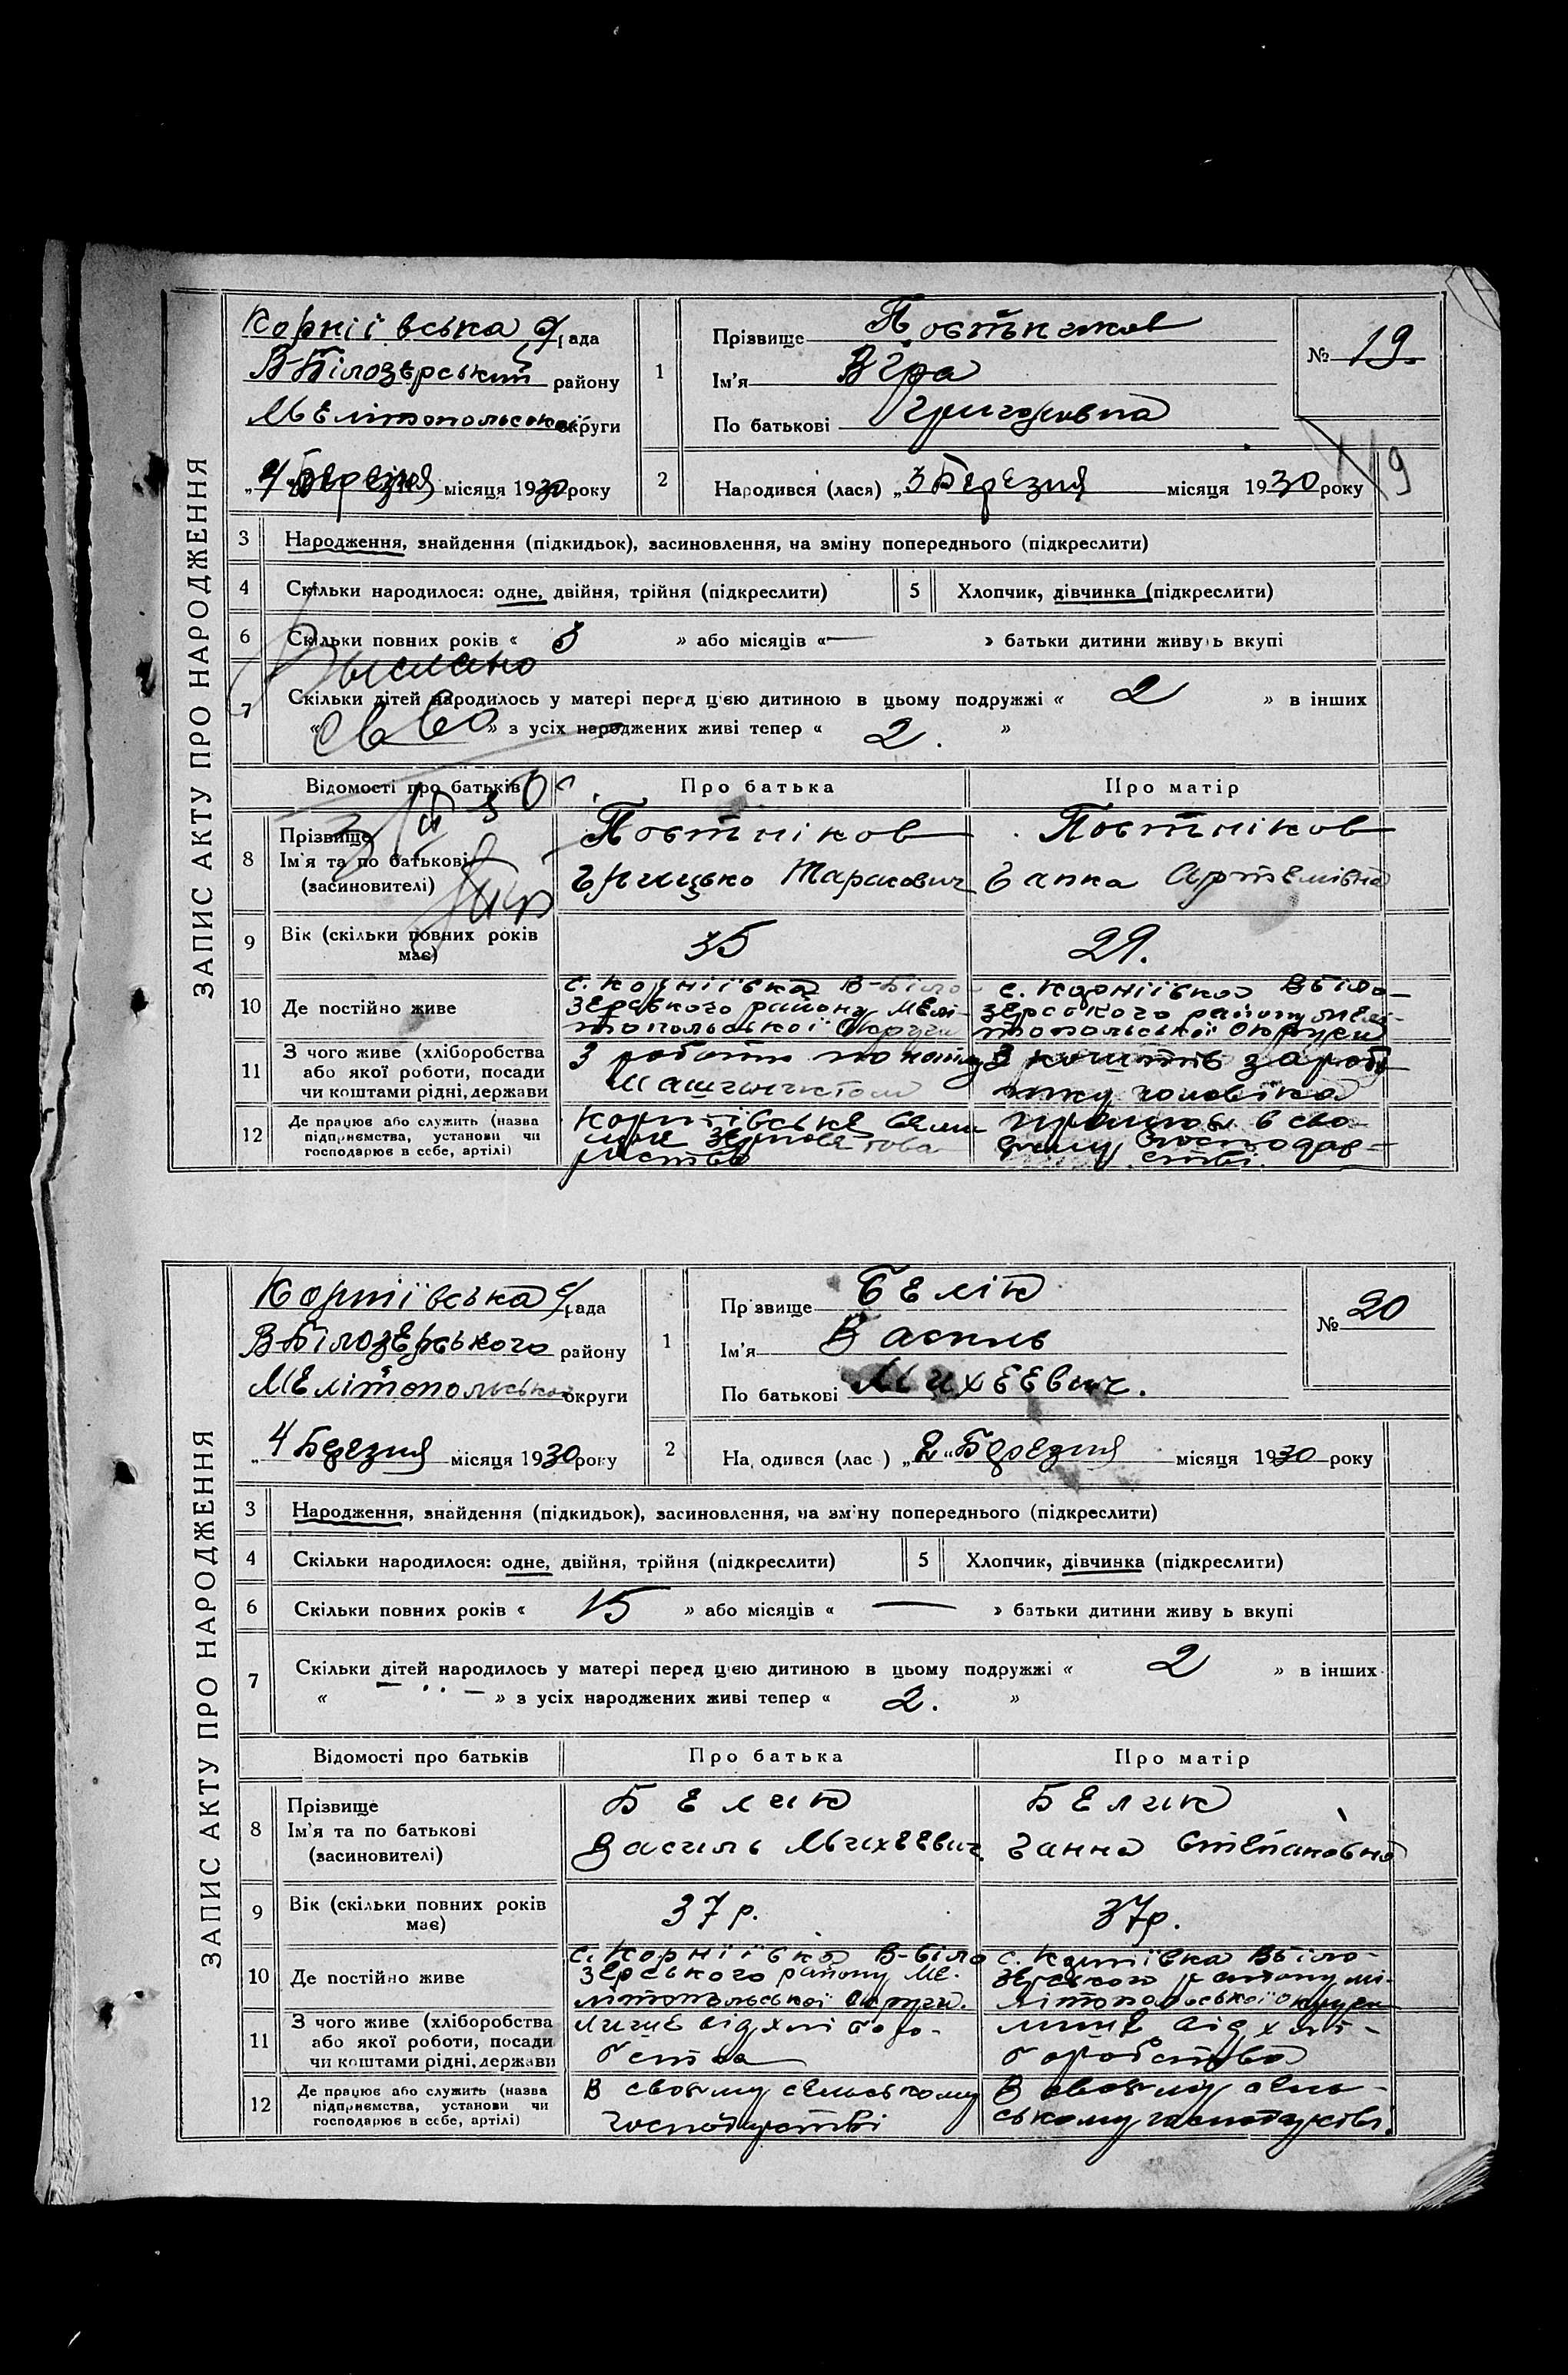 ЗАПИС АКТУ ПРО НАРОДЖЕННЯ
Корніівська с/рада
В-Білозерський району
Мелітопольської округи
„4“ Березня місяця 1930 року
1
Прізвище Постніков
Ім'я Віра
По батькові Григоровна
№ 19.
19
2
Народився (лася) „3 Березня місяця 1930 року
3 Народження, знайдення (підкидьок), засиновлення, на зміну попереднього (підкреслити)
4 Скільки народилося: одне, двійня, трійня (підкреслити)
5 Хлопчик, дівчинка (підкреслити)
6 Скільки повних років « 5 » або місяців «—» батьки дитини живуть вкупі
7 Скільки дітей народилось у матері перед цією дитиною в цьому подружжі « 2 » в інших
« » з усіх народжених живі тепер « 2. »
Выслано
Відомості про батьків
Про батька
Про матір
8 Прізвище
Ім'я та по батькові
(засиновителі)
Постніков
Грицько Таракович
Постніков
Ганна Артемівна
9 Вік (скільки повних років має)
35
29.
10 Де постійно живе
с. Корніівка В-Біло
зерського району Мелі-
топольської Округи
с. Корніівка В Біло-
зерського району Мелі-
топольської Округи
11 З чого живе (хліборобства
або якої роботи, посади
чи коштами рідні, держави
З роботи по найму
Машиністом
З коштів заробі
тку чоловіка
12 Де працює або служить (назва
підприємства, установи чи
господарює в себе, артілі)
Корніівське
зернове това
риство
в сво
єму господар-
стві.
ЗАПИС АКТУ ПРО НАРОДЖЕННЯ
Корніївська с/рада
В-Білозерського району
Мелітопольської округи
„4 Березня місяця 1930 року
1
Прізвище Белік
Ім'я Василь
По батькові Михеевич.
№ 20
2
Народився (лас ) „2“ Березня місяця 1930 року
3 Народження, знайдення (підкидьок), засиновлення, на зміну попереднього (підкреслити)
4 Скільки народилося: одне, двійня, трійня (підкреслити)
5 Хлопчик, дівчинка (підкреслити)
6 Скільки повних років « 15 » або місяців « — » батьки дитини живу ь вкупі
7 Скільки дітей народилось у матері перед цією дитиною в цьому подружжі « 2 » в інших
« — » з усіх народжених живі тепер « 2. »
Відомості про батьків
Про батька
Про матір
8 Прізвище
Ім'я та по батькові
(засиновителі)
Белик
Василь Михеевич
Белик
Ганна Степановна
9 Вік (скільки повних років має)
37 р.
37р.
10 Де постійно живе
с. Корніївка В-Біло
зерського району Ме-
літопольської Округи.
с. Корніівка В Біло-
зерського району Мі-
літопольської округи
11 З чого живе (хліборобства
або якої роботи, посади
чи коштами рідні, держави
лише від хлі боро-
бства
лише від хлі-
боробства
12 Де працює або служить (назва
підприємства, установи чи
господарює в себе, артілі)
В своєму сельському
господарстві
В своєму сель-
ському господарстві.